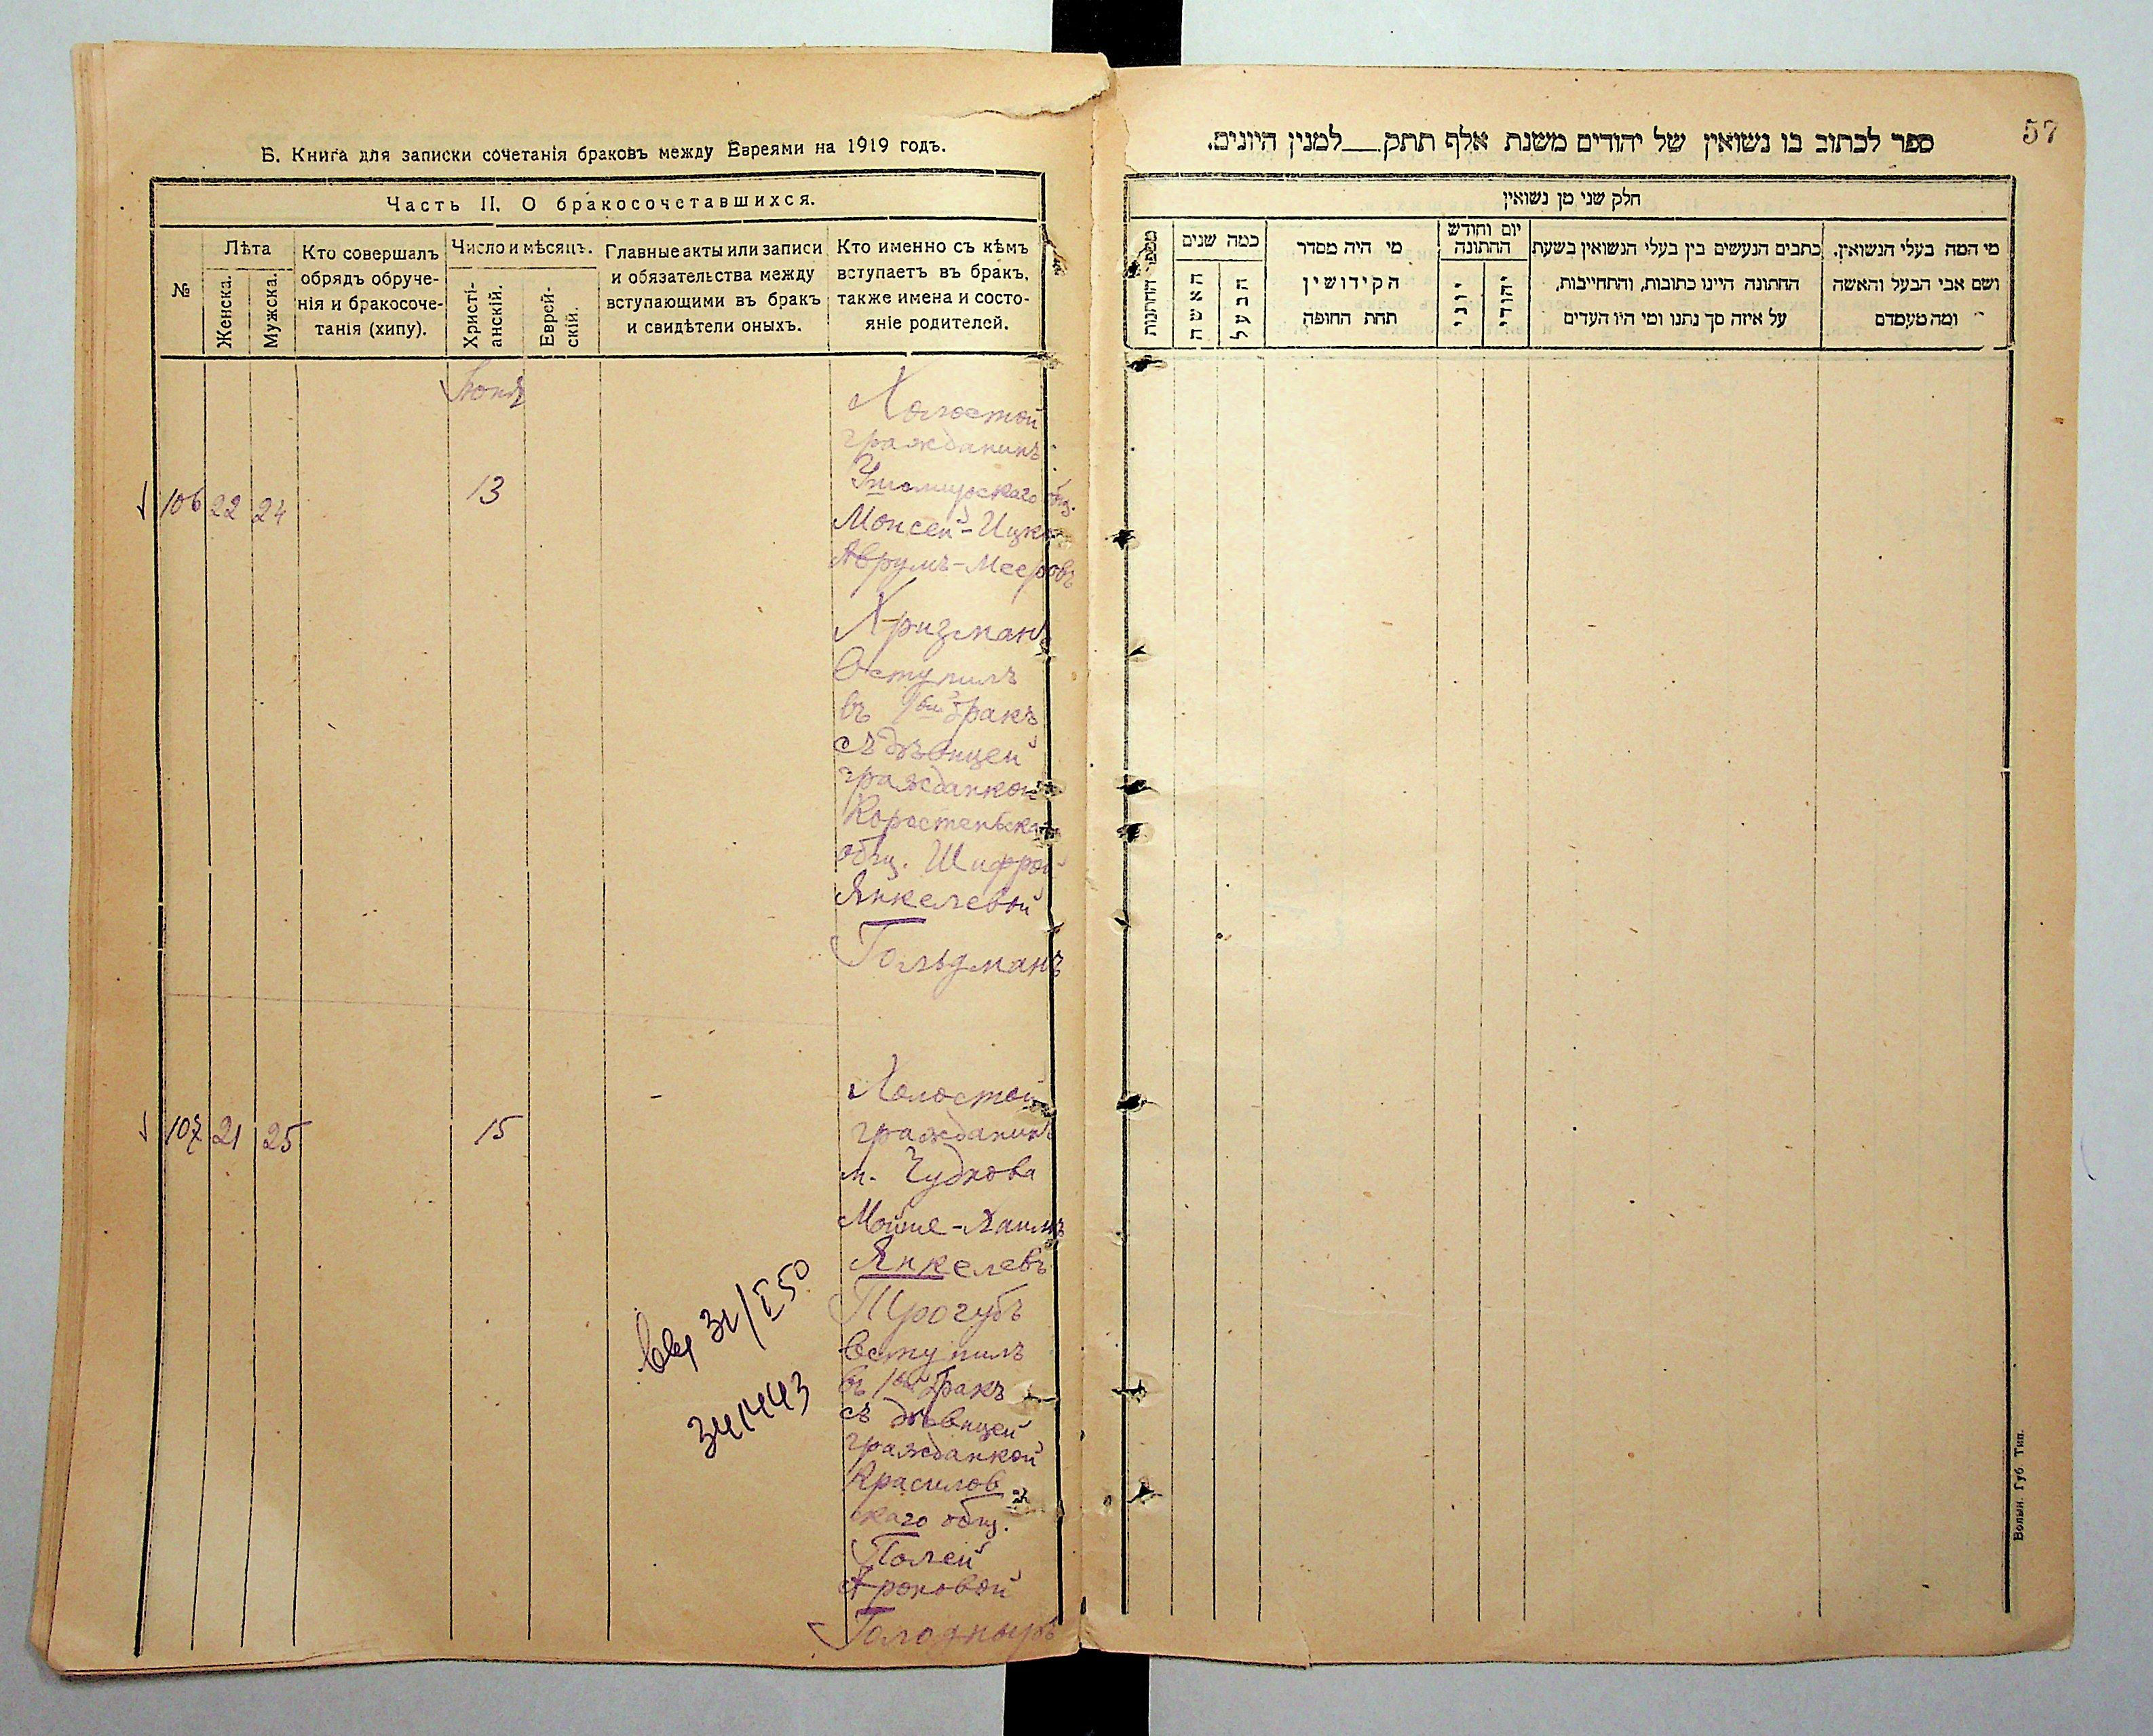 Б. Книга для записки сочетанія браковъ между Евреями на 1919 годъ.
Часть II. О бракосочетавшихся.
№
Лѣта
Женска.
Мужска.
Кто совершалъ
обрядъ обруче-
нія и бракосоче-
танія (хипу).
Число и мѣсяцъ.
Христі-
анскій.
Еврей-
скій.
Главные акты или записи
и обязательства между
вступающими въ бракъ
и свидѣтели оныхъ.
Кто именно съ кѣмъ
вступаетъ въ бракъ,
также имена и состо-
яніе родителей.
Іюня
106 22 24 13
Холостой
гражданинъ
общ.
Моисей-Ицко
Аврумъ-Мееровъ
Кризманъ
Вступилъ
въ 1ый бракъ
съ дѣвицей
гражданкой
Коростеньска
общ. Шифрой
Янкелевой
Гольдманъ
107 21 25 15
Холостой
гражданинъ
м. Чуднова
Мойше-Хаимъ
Янкелевъ
Трогубъ
вступилъ
въ 1ый бракъ
съ дѣвицей
гражданкой
Красилов
скаго общ.
Полей
Ароновой
31/I 50
341443
57
ספר לכתוב בו נשואין של יהודים משנת אלף תתק__למנין היונים.
חלק שני מן נשואין
מספר החתנות
כמה שנים
האשה
הבעל
מי היה מסדר
הקידושין
תחת החופה
יום וחודש
החתונה
יוני
יהודי
כתבים הנעשים בין בעלי הנשואין בשעת
החתונה היינו כתובות, והתחייבות,
על איזה סך נתנו ומי היו העדים
מי המה בעלי הנשואין,
ושם אבי הבעל והאשה
ומה מעמדם
Волын. Губ. Тип.